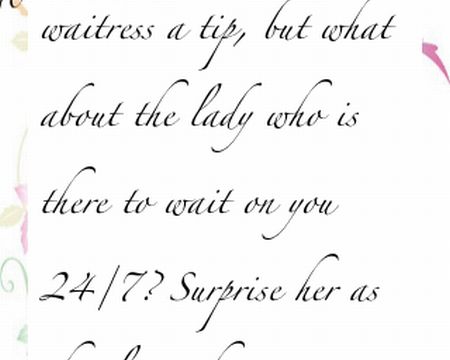 waitress a tip, but what
about the lady who is
there to wait on you
24/7? Surprise her as